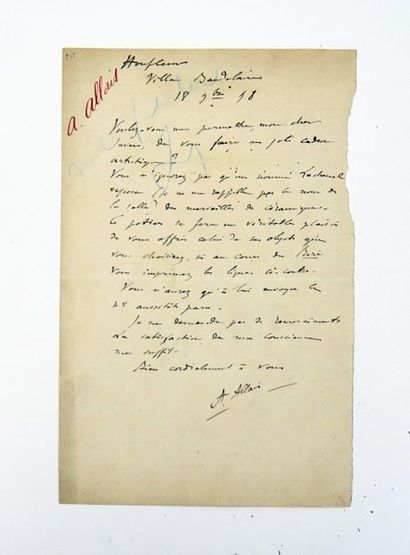 A. Allais
Honfleur
Villa Baudelaire
18 9bre 98
Voulez-vous me permettre, mon cher
de vous faire un joli cadeau
artistique ?
Vous n'ignorez pas qu'un nommé
expose (je ne me rappelle pas le nom de
la salle) des merveilles de céramique.
Ce potier se fera un véritable plaisir
de vous offrir celui de ses objets que
vous choisirez, si au cours du
vous imprimez les lignes ci-contre.
Vous n'aurez qu'à lui envoyer le
No aussitôt paru.
Je ne demande pas de remerciements
La satisfaction de ma conscience
me suffit.
Bien cordialement à vous
A. Allais